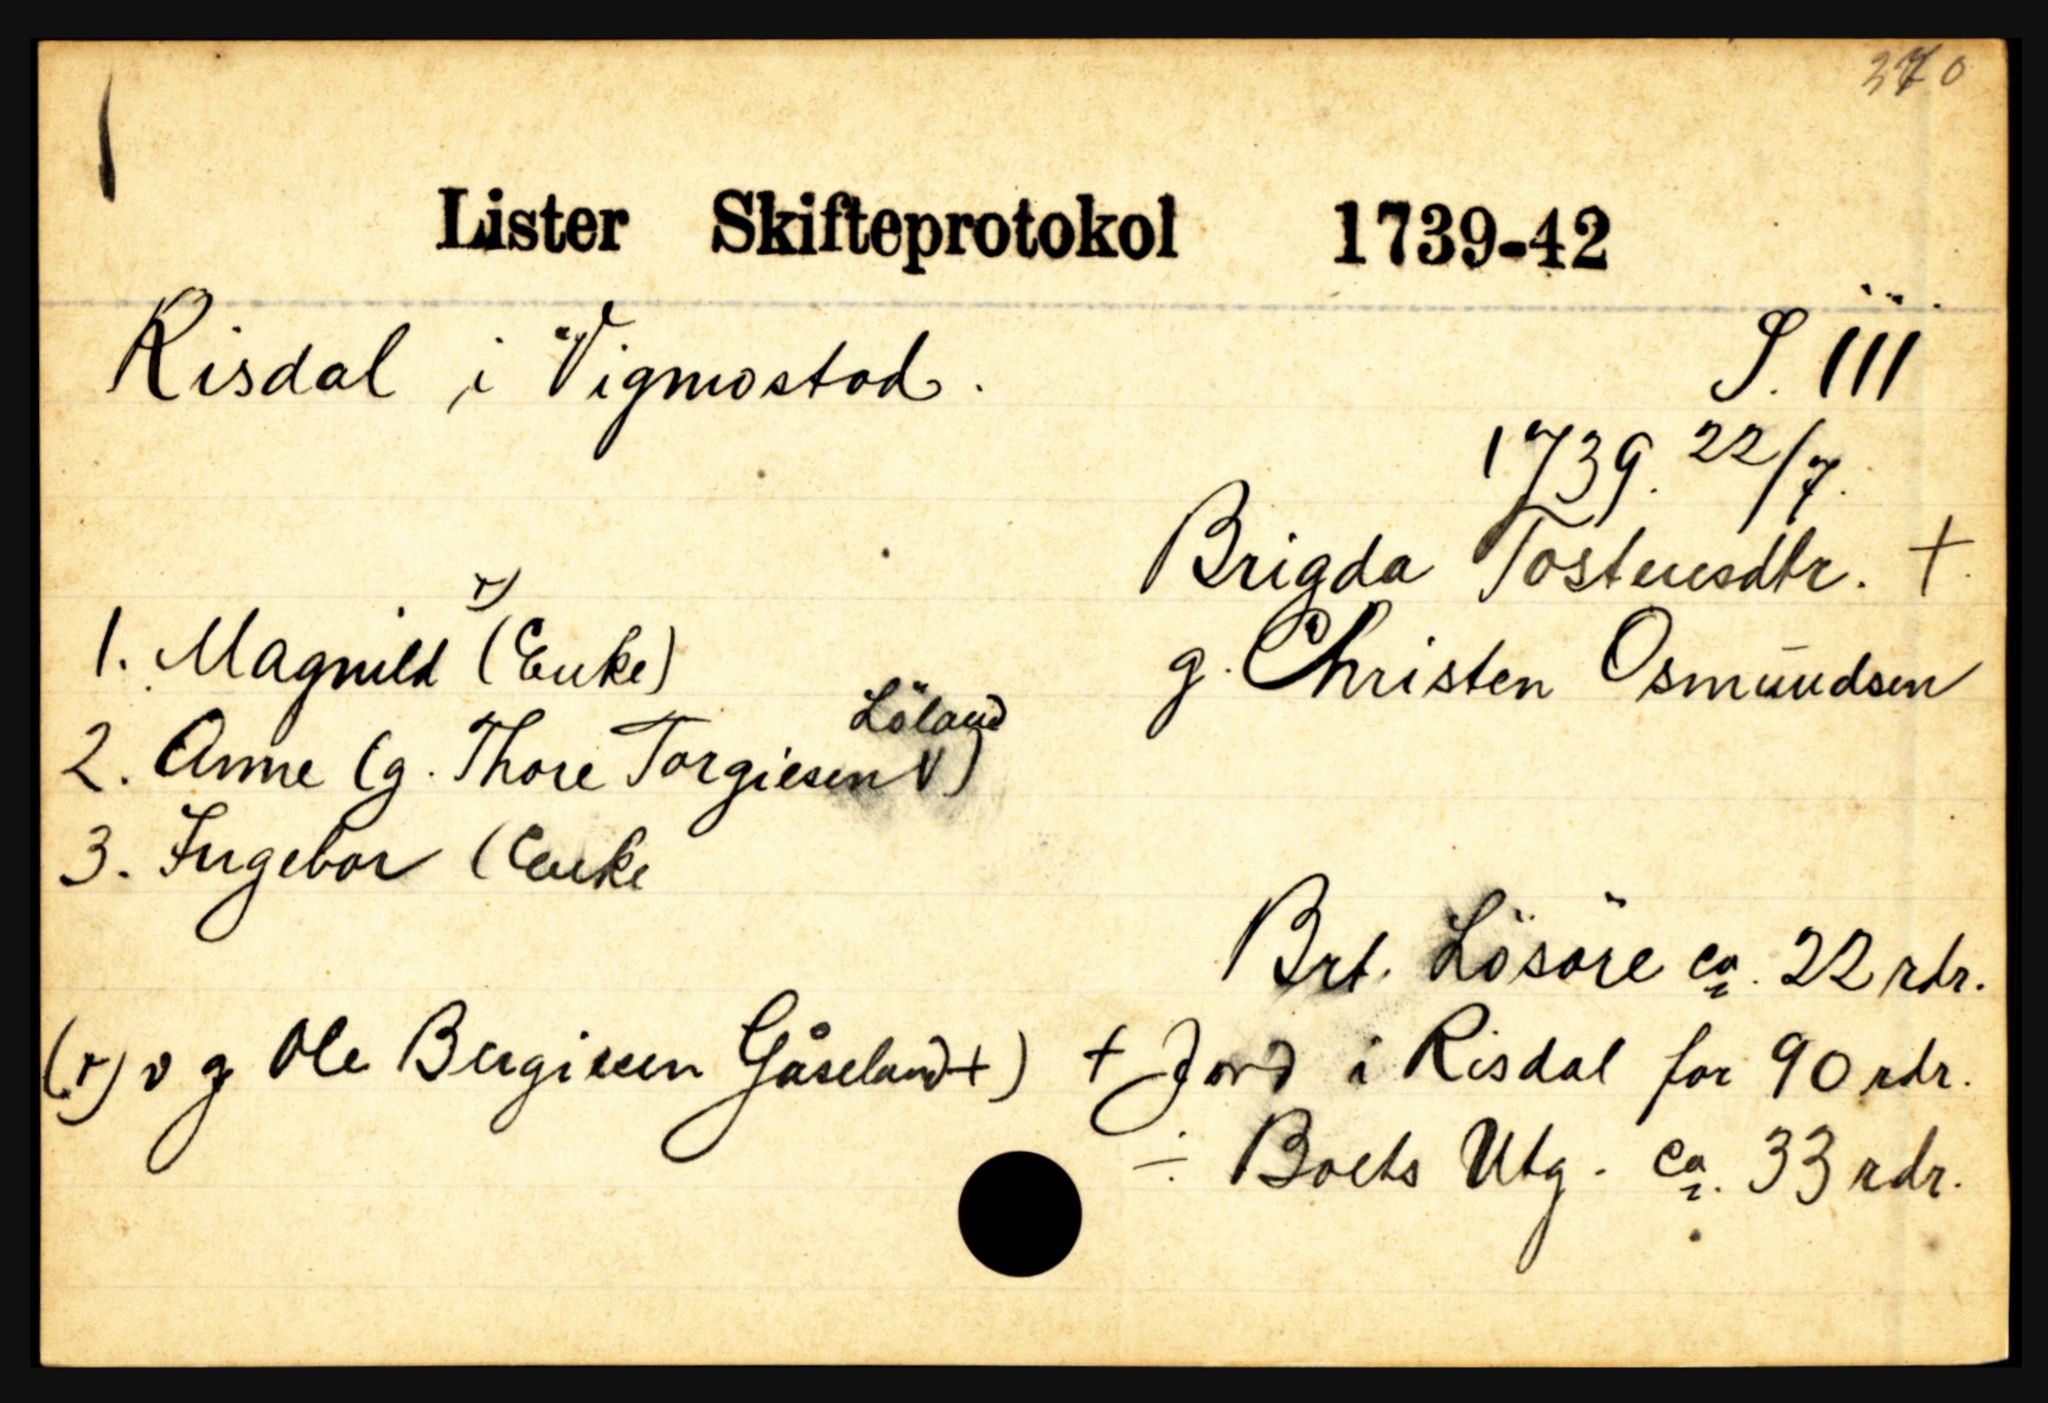 270
Lister Skifteprotokol 1739-42
Risdal i Vigmostad. S. 111
1739. 22/7.
Brigda Tostensdtr. +
g. Christen Osmundsen
1. Magnild x) (Enke)
2. Anne (g. Thore Torgiesen Löland V)
3. Ingebor (Enke
Brt. Lösöre ca. 22 rdr.
+ Jord i Risdal for 90 rdr.
÷ Boets Utg. ca. 33 rdr.
(x) v g Ole Bergiesen Gåseland +)